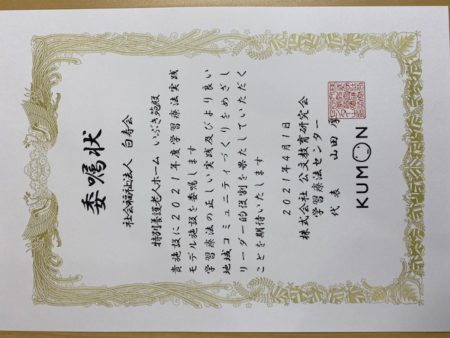 委嘱状
社会福祉法人 白寿会
特別養護老人ホーム いぶき苑殿
貴施設に2021年度学習療法実践
モデル施設を委嘱します
学習療法の正しい実践及びより良い
地域コミュニティづくりをめざし
リーダー的役割を果たしていただく
ことを期待いたします
2021年4月1日
株式会社 公文教育研究会
学習療法センター
代表 山田
KUMON